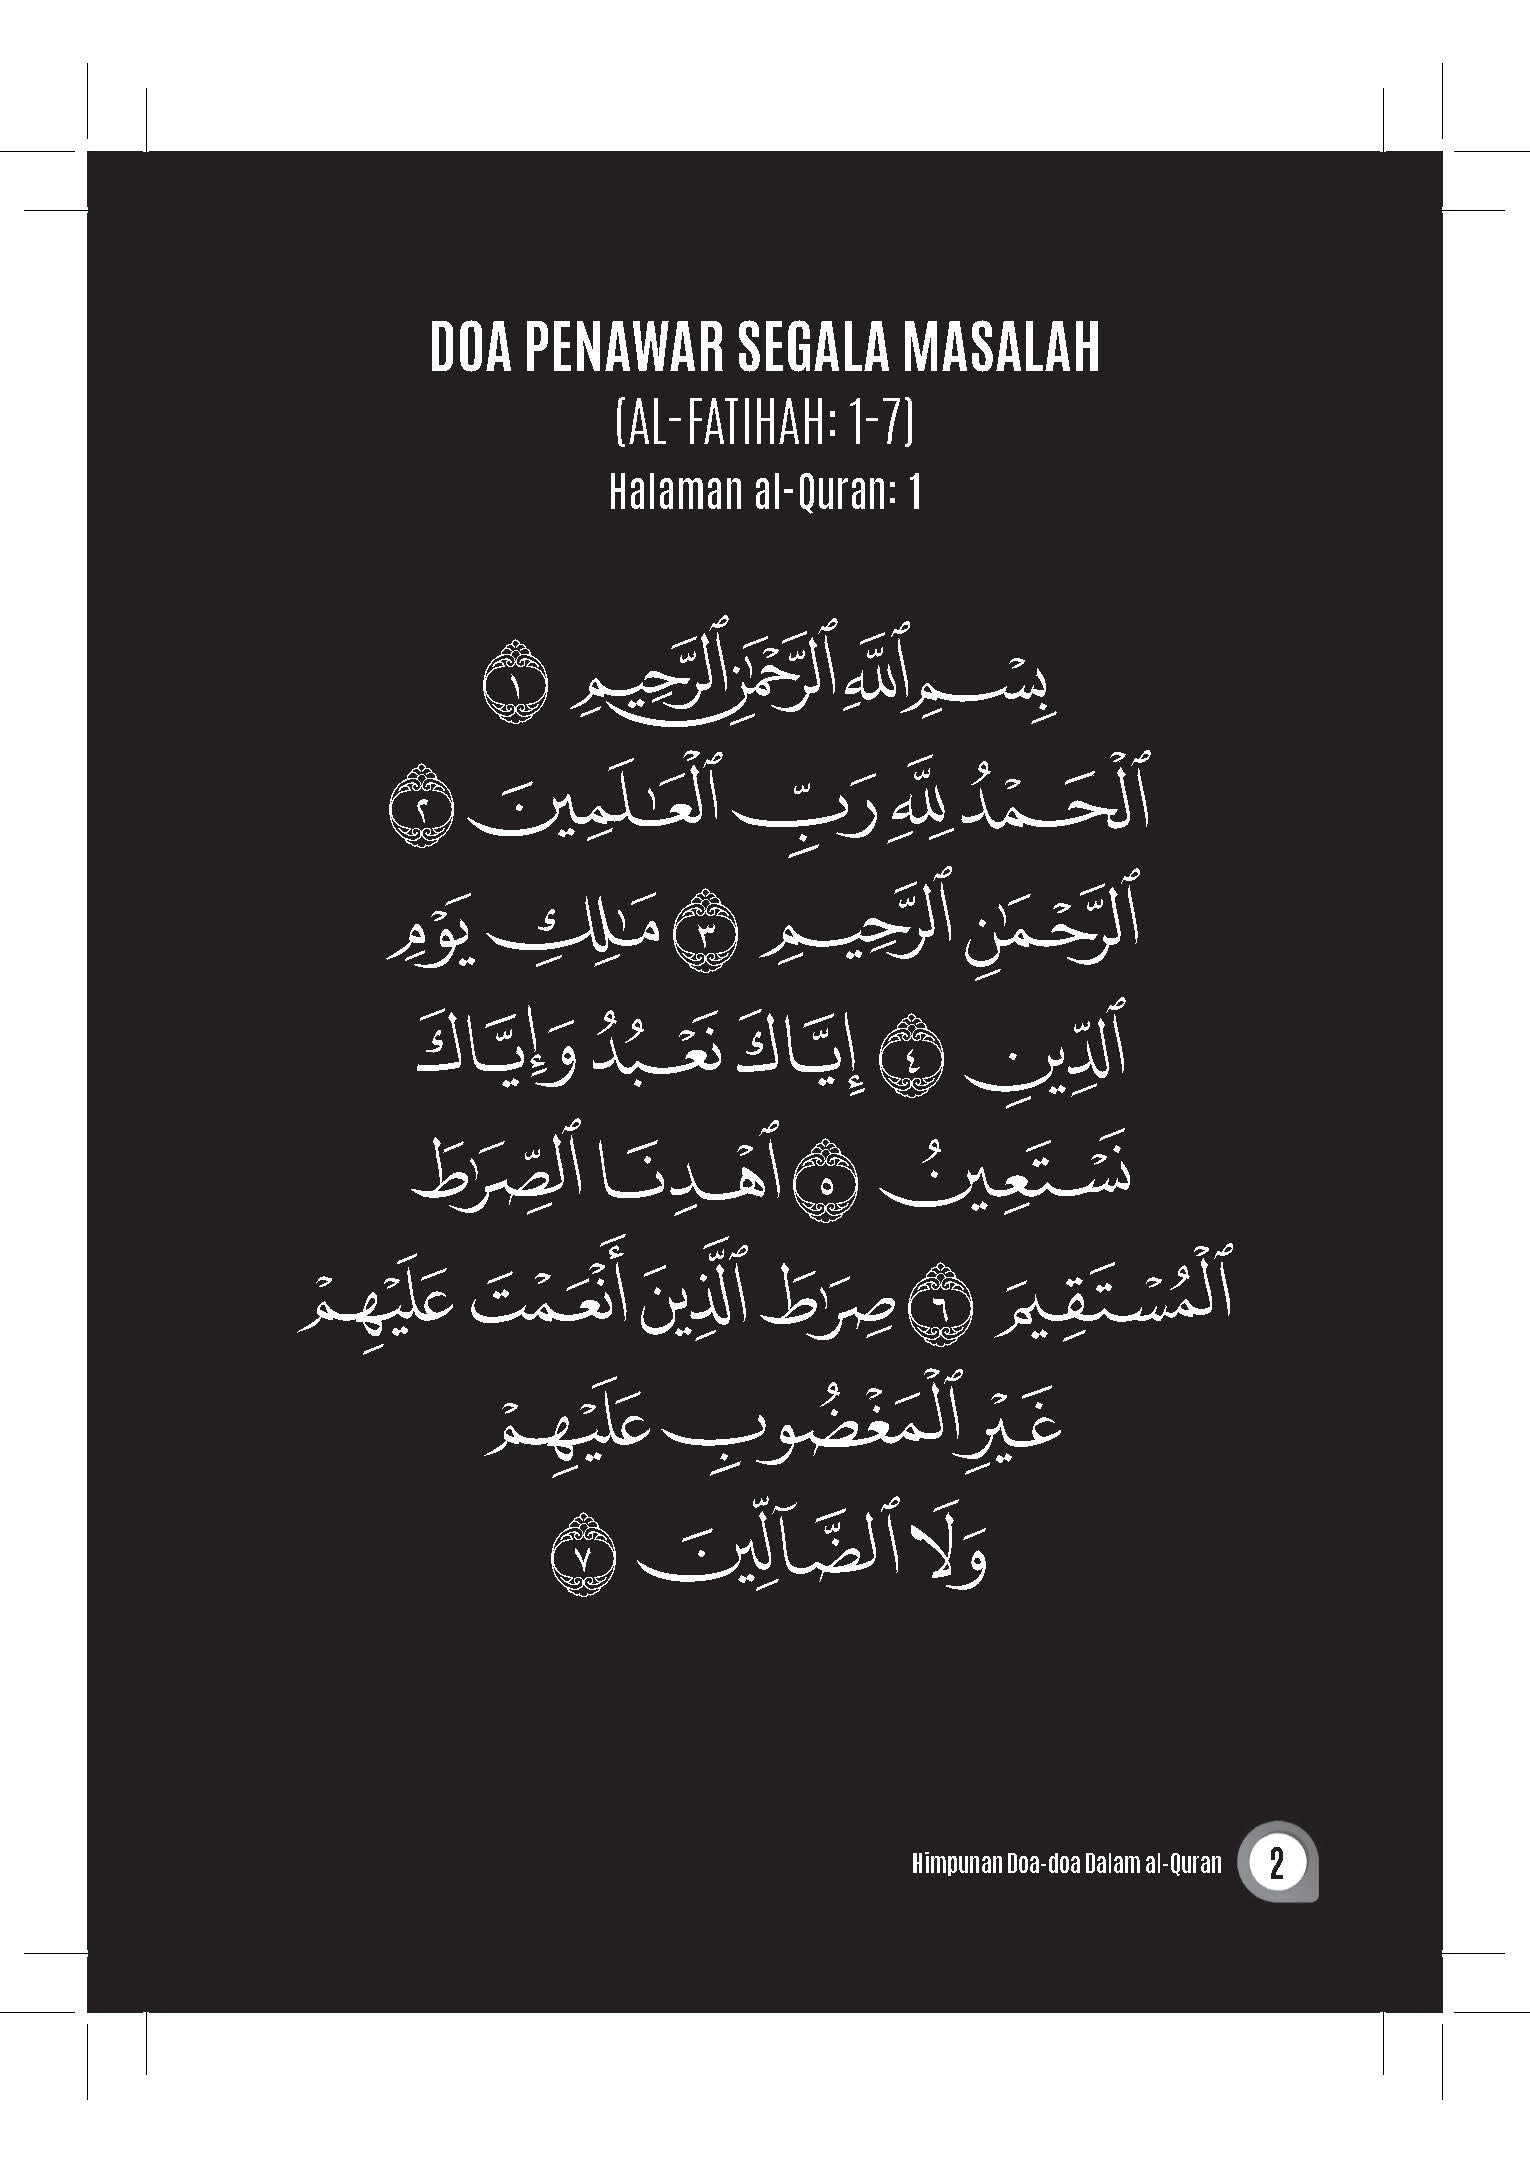 DOA PENAWAR SEGALA MASALAH
(AL-FATIHAH: 1-7)
Halaman al-Quran: 1
بِسْمِ ٱللَّهِ ٱلرَّحْمَٰنِ ٱلرَّحِيمِ ١
ٱلْحَمْدُ لِلَّهِ رَبِّ ٱلْعَـٰلَمِينَ ٢
ٱلرَّحْمَٰنِ ٱلرَّحِيمِ ٣ مَـٰلِكِ يَوْمِ
ٱلدِّينِ ٤ إِيَّاكَ نَعْبُدُ وَإِيَّاكَ
نَسْتَعِينُ ٥ ٱهْدِنَا ٱلصِّرَٰطَ
ٱلْمُسْتَقِيمَ ٦ صِرَٰطَ ٱلَّذِينَ أَنْعَمْتَ عَلَيْهِمْ
غَيْرِ ٱلْمَغْضُوبِ عَلَيْهِمْ
وَلَا ٱلضَّآلِّينَ ٧
Himpunan Doa-doa Dalam al-Quran 2